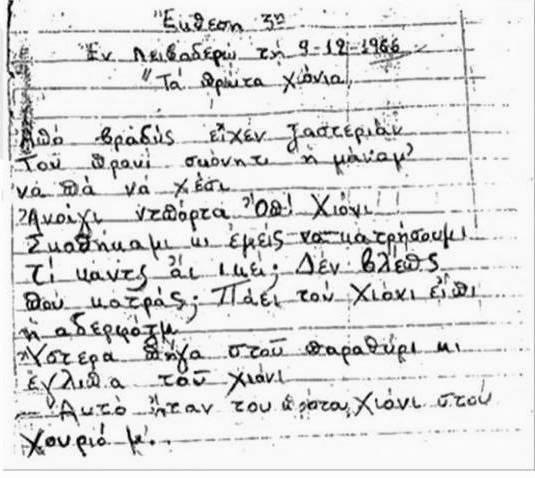 Ἔκθεση 3η
Ἐν Λειβαδερῶ τῇ 9-12-1966
"Τά πρῶτα χιόνια
Ἀπό βραδύς εἶχεν ξαστεριάν
Τοῦ πρωνί σκόνητι ἡ μάναμ'
νά πά νά χέσι
Ἀνοίγι ντπόρτα Ὄπ! Χιόνι
Σκοθήκαμι κι ἐμείς να κατρήσουμι
Τί καντς ἄι ικεί; Δέν βλέπς
που κατράς; Πάει τοῦ Χιόνι εἶπι
ἡ αδερφότμ
Ὕστερα πῆγα στοῦ παραθύρι κι
ἔγλιπα τοῦ χιόνι
- Αυτό ἦταν του πρῶτα Χιόνι στοῦ
Χουριό μ'.